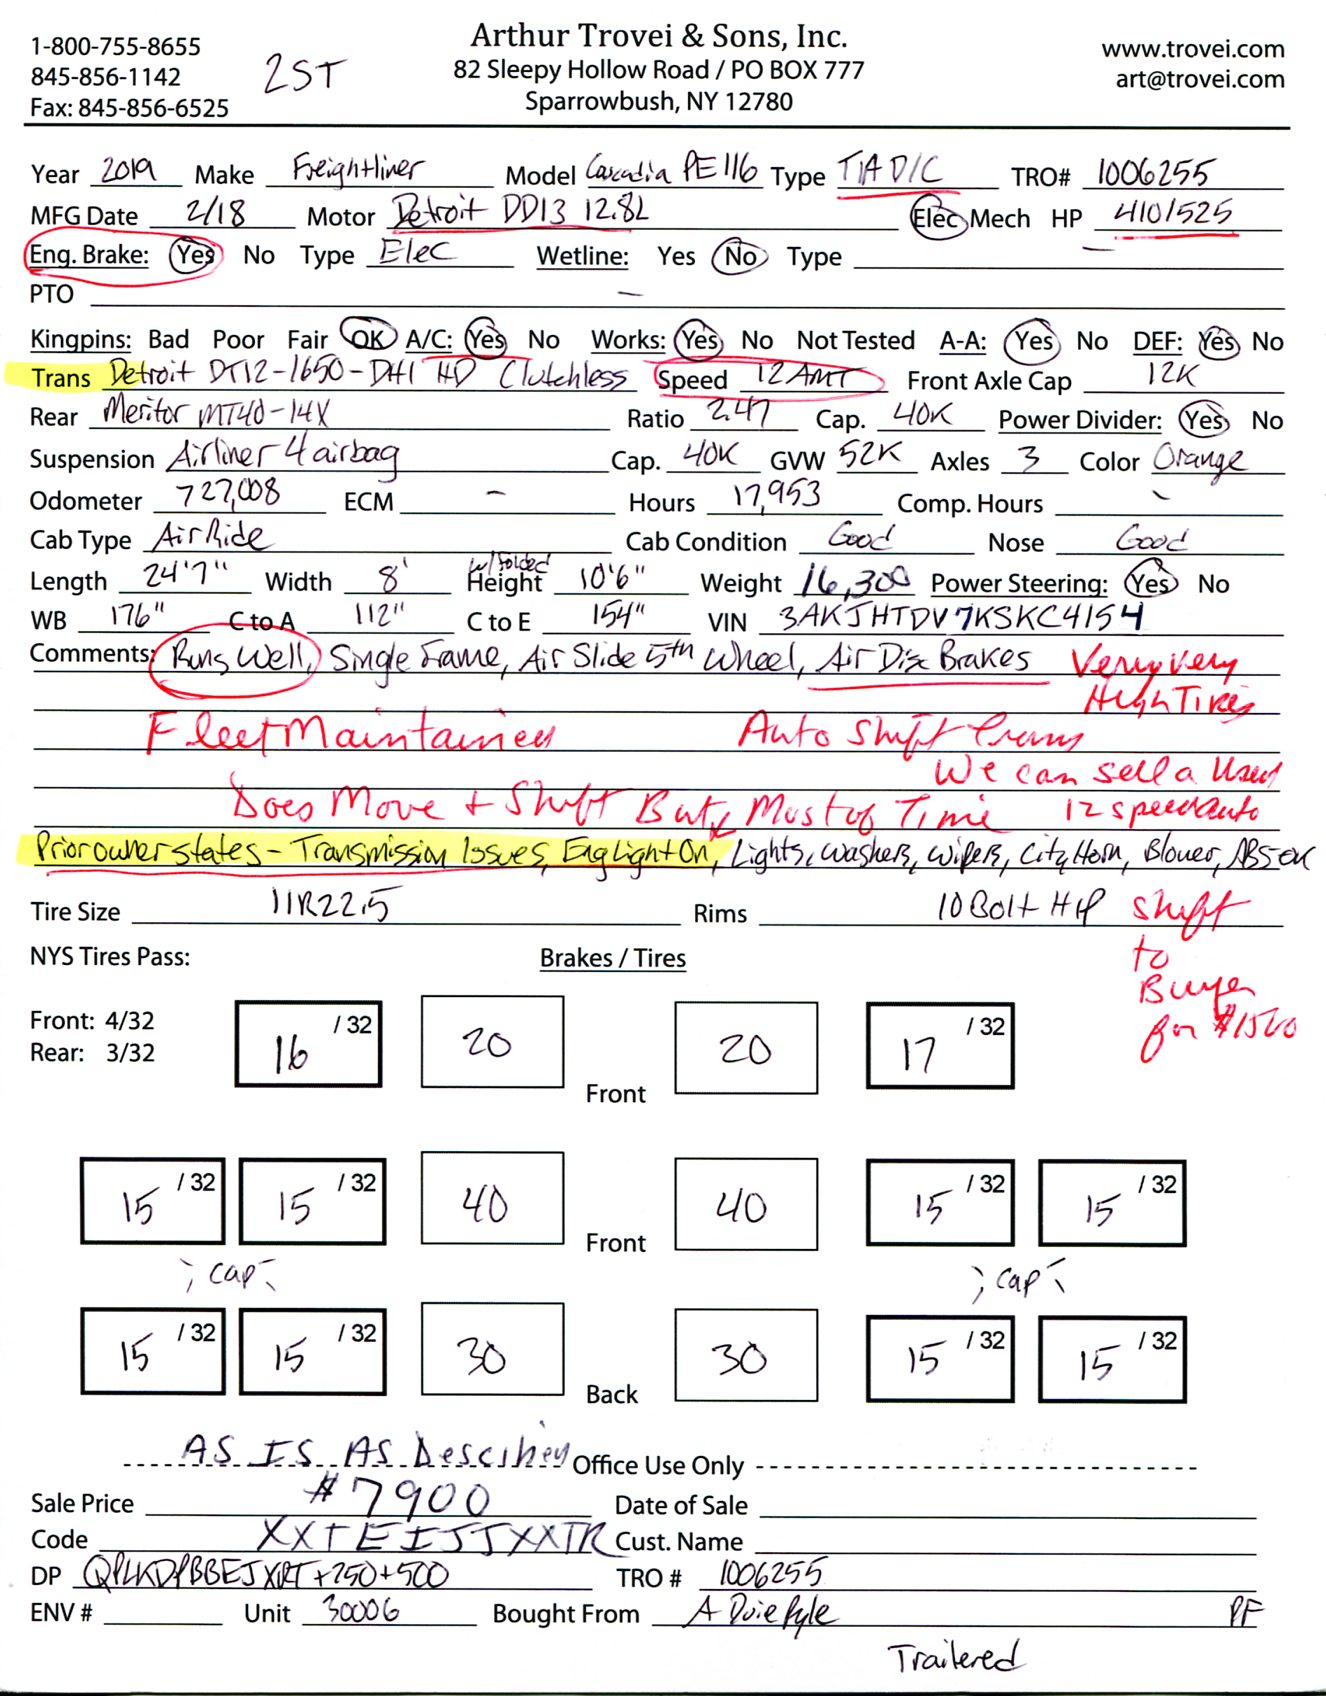 1-800-755-8655
845-856-1142
Fax: 845-856-6525
2ST
Arthur Trovei & Sons, Inc.
82 Sleepy Hollow Road / PO BOX 777
Sparrowbush, NY 12780
www.trovei.com
art@trovei.com
Year 2019 Make Freightliner Model Cascadia PE116 Type T/A D/C TRO# 1006255
MFG Date 2/18 Motor Detroit DD13 12.8L Elec Mech HP 410/525
Eng. Brake: Yes No Type Elec Wetline: Yes No Type —
PTO —
Kingpins: Bad Poor Fair OK A/C: Yes No Works: Yes No Not Tested A-A: Yes No DEF: Yes No
Trans Detroit DT12-1650-DH1 HD Clutchless Speed 12 AMT Front Axle Cap 12K
Rear Meritor MT40-14X Ratio 2.47 Cap. 40K Power Divider: Yes No
Suspension Airliner 4 airbag Cap. 40K GVW 52K Axles 3 Color Orange
Odometer 727,008 ECM - Hours 17,953 Comp. Hours -
Cab Type Air Ride Cab Condition Good Nose Good
Length 24'7" Width 8' w/ Folded Height 10'6" Weight 16,300 Power Steering: Yes No
WB 176" C to A 112" C to E 154" VIN 3AKJHTDV7KSKC4154
Comments: Runs Well, Single Frame, Air Slide 5th Wheel, Air Disc Brakes Very very
High Tires
Fleet Maintained Auto Shift Trans
We can sell a Used
Does Move + Shift But, Most of Time 12 speed auto
Prior owner states - Transmission Issues, Eng Light On, Lights, Washers, Wipers, City Horn, Blower, ABS OK
Tire Size 11R22.5 Rims 10 Bolt H/P Shift
to
Buyer
for $1500
NYS Tires Pass: Brakes / Tires
Front: 4/32
Rear: 3/32
16 /32 20 Front 20 17 /32
15 /32 15 /32 40 Front 40 15 /32 15 /32
cap cap
15 /32 15 /32 30 Back 30 15 /32 15 /32
AS IS AS Describen Office Use Only
Sale Price $7900 Date of Sale
Code XXTEIJJXXTR Cust. Name
DP QPLKDPBBEJXRT+250+500 TRO # 1006255
ENV # Unit 30006 Bought From A Duie Pyle PF
Trailered